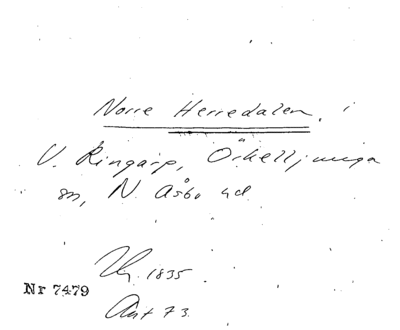 Norre Herredalen, i
V. Ringarp, Örkelljunga
sn, N. Åsbo hd
1835
Nr 7479
Ant 73.